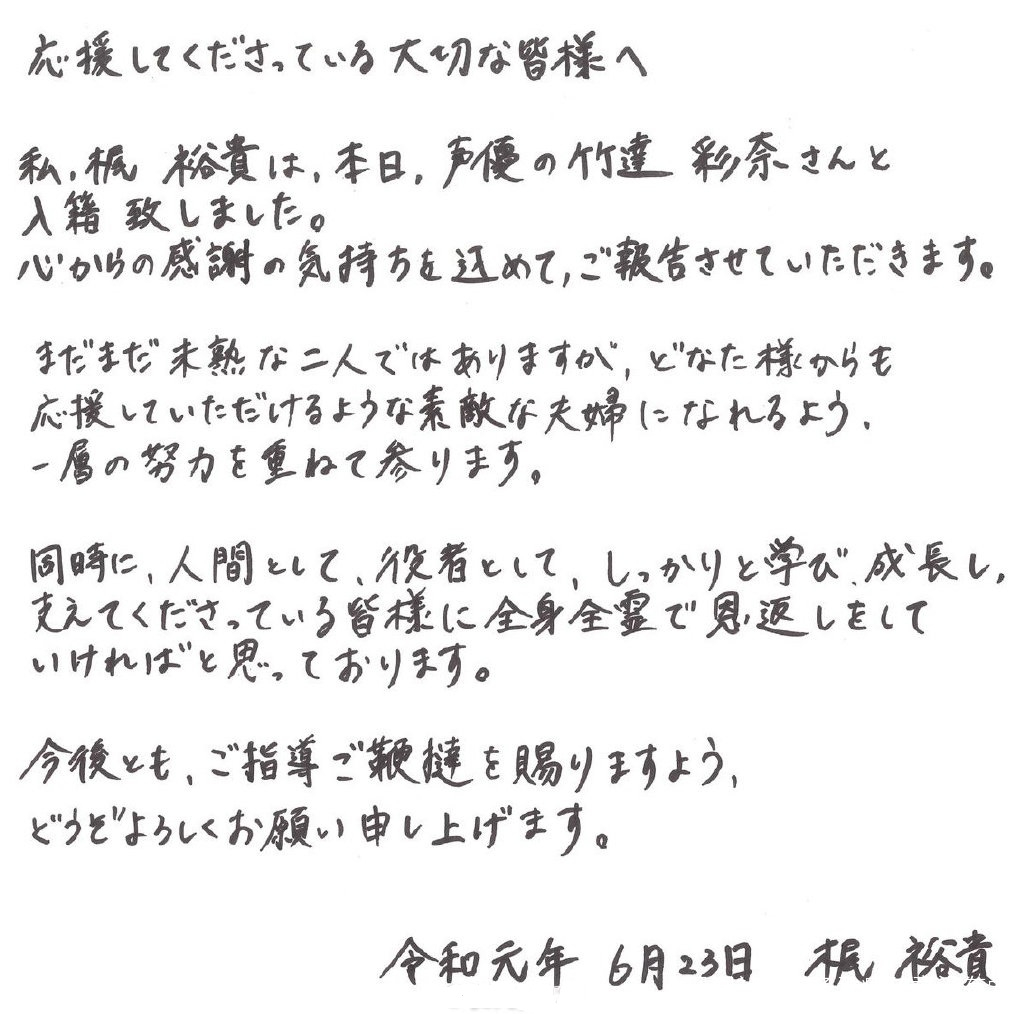 応援してくださっている大切な皆様へ
私、梶 裕貴は、本日、声優の竹達 彩奈さんと
入籍致しました。
心からの感謝の気持ちを込めて、ご報告させていただきます。
まだまだ未熟な二人ではありますが、どなた様からも
応援していただけるような素敵な夫婦になれるよう、
一層の努力を重ねて参ります。
同時に、人間として、役者として、しっかりと学び、成長し、
支えてくださっている皆様に全身全霊で恩返しをして
いければと思っております。
今後とも、ご指導ご鞭撻を賜りますよう、
どうぞよろしくお願い申し上げます。
令和元年 6月23日 梶 裕貴